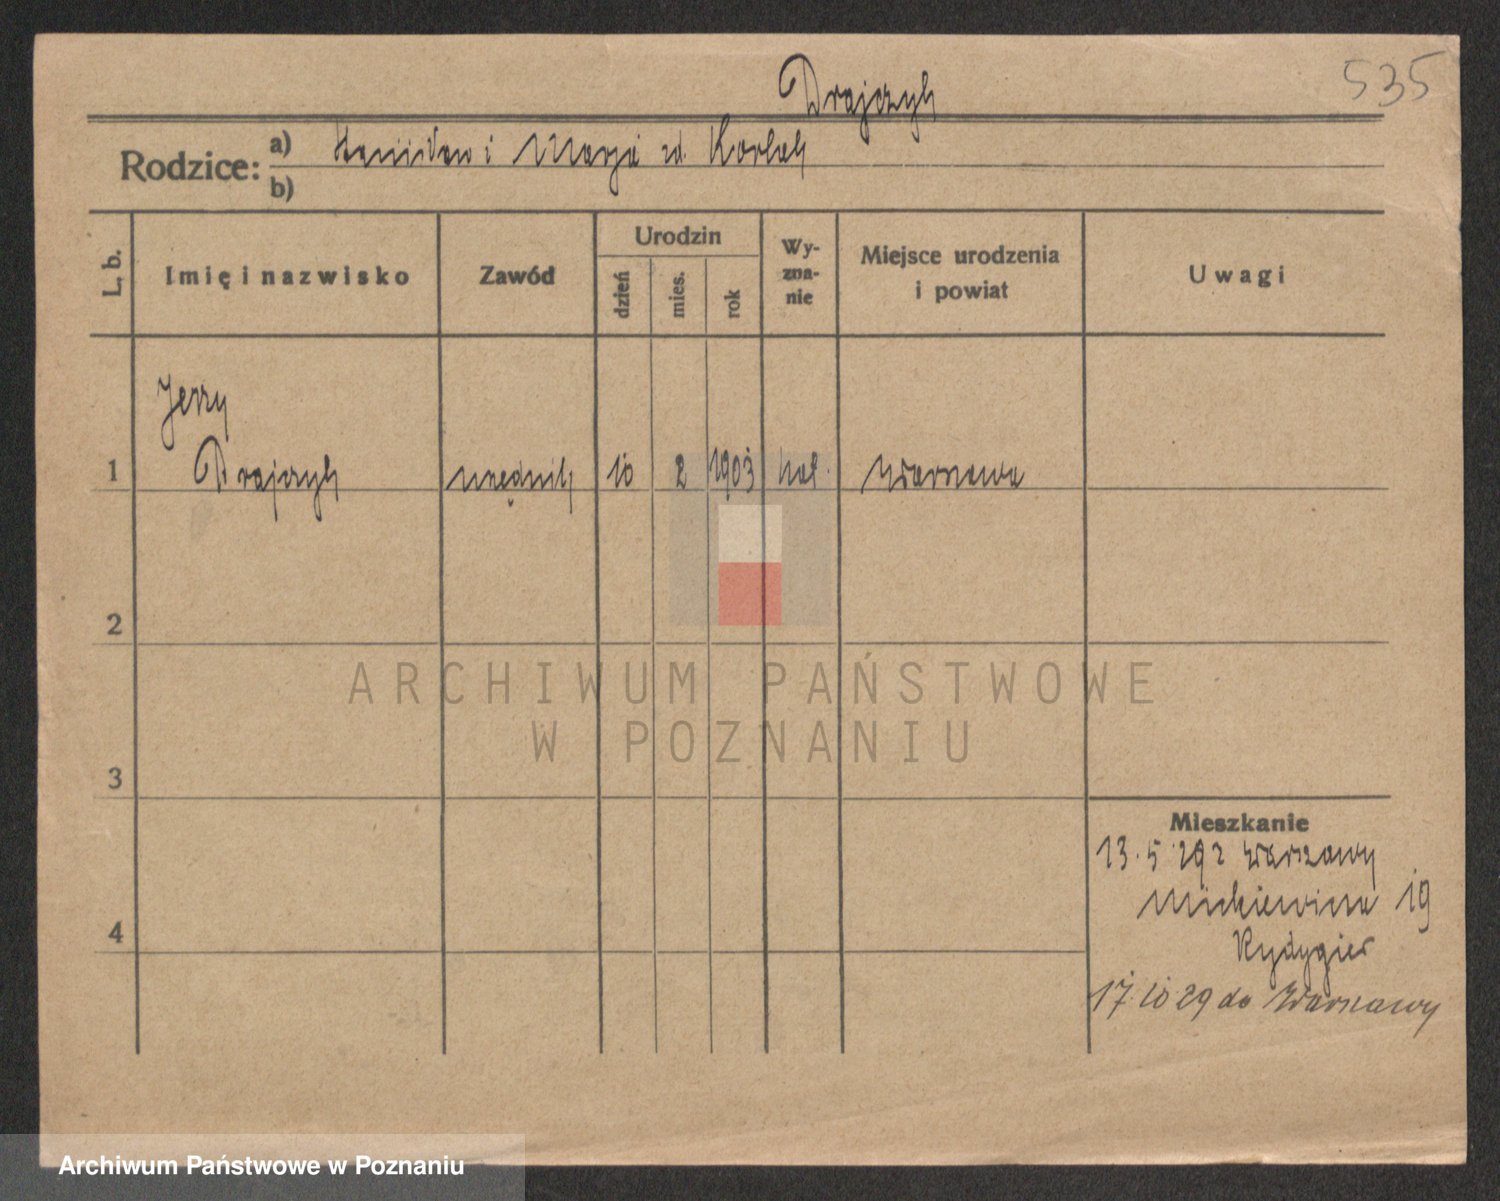 535
Drajczyk
Rodzice: a) Stanisław i Marja zd.
b)
L. b. Imię i nazwisko Zawód Urodzin dzień mies. rok Wy-zna-nie Miejsce urodzenia i powiat Uwagi
Jerzy
1 Drajczyk urzędnik 10 2 1903 kat. Warszawa
2
ARCHIWUM PAŃSTWOWE
W POZNANIU
3
Mieszkanie
13. 5 29 z Warszawy
Mickiewicza 19
4
Rydygier
17 10 29 do Warszawy
Archiwum Państwowe w Poznaniu